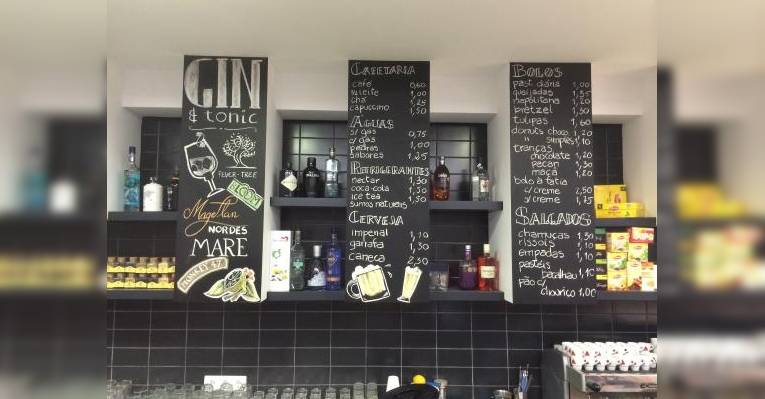 GIN
& tonic
FEVER-TREE
BLOOM
Magellan
NORDES
MARE
MONKEY 47
CAFETARIA
café 0,60
1,00
chá 1,25
capuccino 1,50
ÁGUAS
s/ gás 0,75
c/ gás
pedras 1,00
sabores 1,25
REFRIGERANTES
nectar 1,30
coca-cola 1,30
ice tea 1,30
sumos naturais 1,50
CERVEJA
imperial 1,10
garrafa 1,30
caneca 2,50
BOLOS
past. diária 1,00
queijadas 1,35
napolitana 1,20
pretzel 1,30
tulipas 1,60
donuts choco. 1,20
" simples 1,10
tranças
chocolate 1,20
pecan 1,30
maçã 1,20
bolo à fatia
c/ creme 2,50
s/ creme 1,75
SALGADOS
chamuças 1,30
rissóis 1,10
empadas 1,10
pastéis
bacalhau 1,10
pão c/
chouriço 1,00